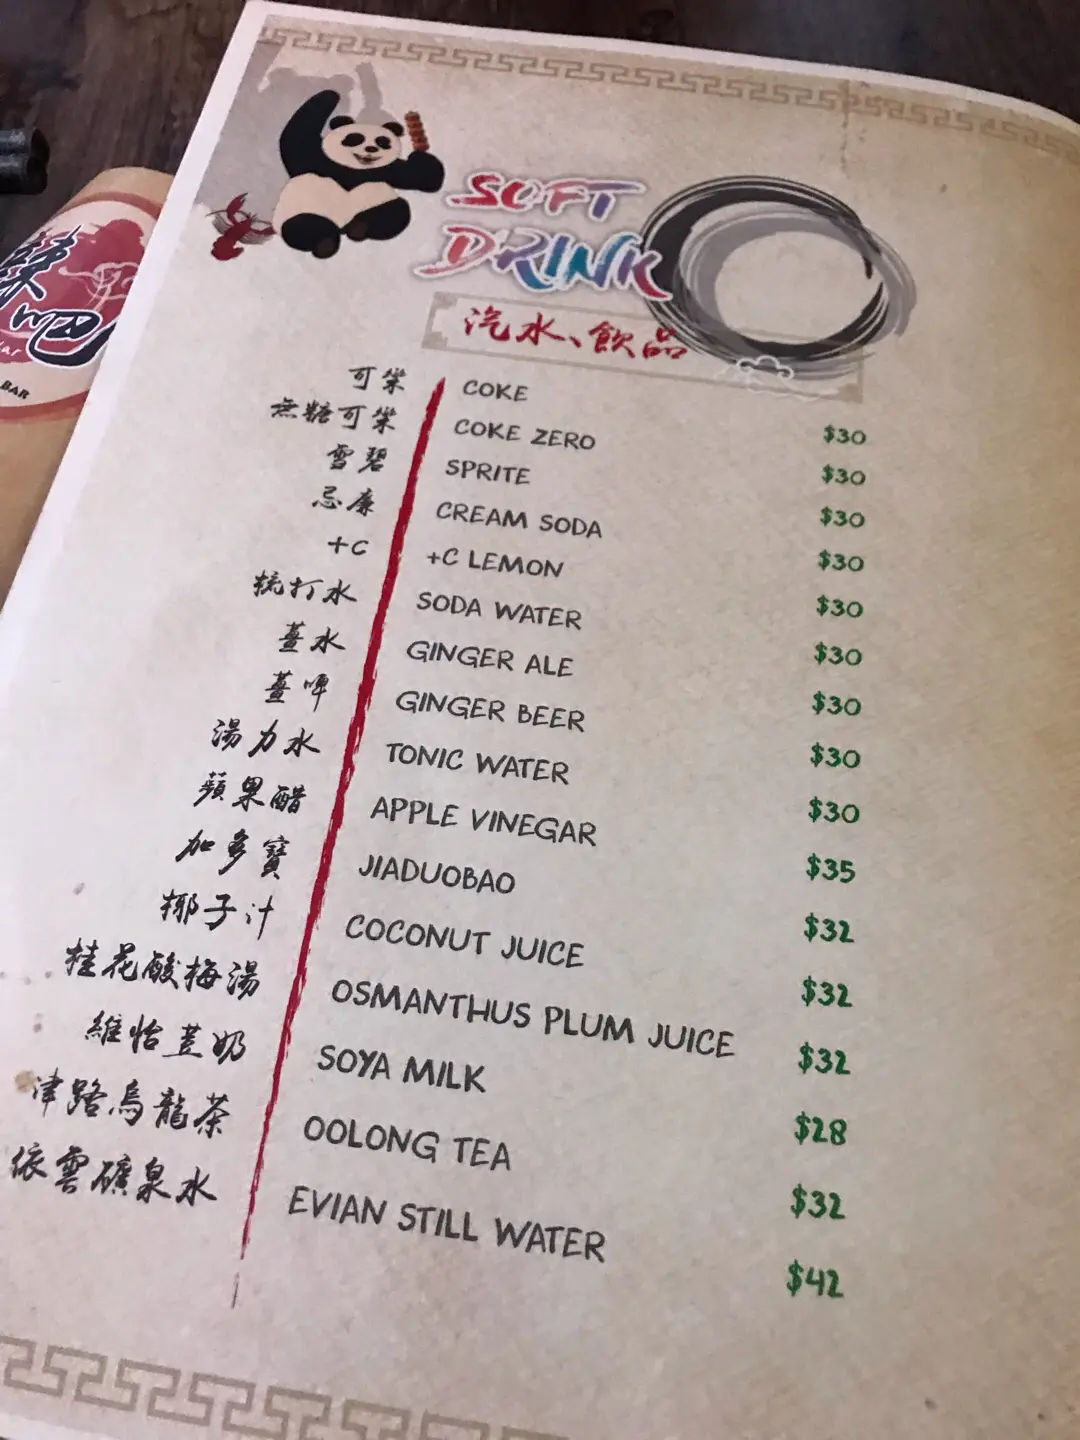 SOFT
DRINK
汽水、飲品
可樂 COKE $30
無糖可樂 COKE ZERO $30
雪碧 SPRITE $30
忌廉 CREAM SODA $30
+C +C LEMON $30
梳打水 SODA WATER $30
薑水 GINGER ALE $30
薑啤 GINGER BEER $30
湯力水 TONIC WATER $30
蘋果醋 APPLE VINEGAR $35
加多寶 JIADUOBAO $32
椰子汁 COCONUT JUICE $32
桂花酸梅湯 OSMANTHUS PLUM JUICE $32
維怡荳奶 SOYA MILK $28
津路烏龍茶 OOLONG TEA $32
依雲礦泉水 EVIAN STILL WATER $42
吧
BAR